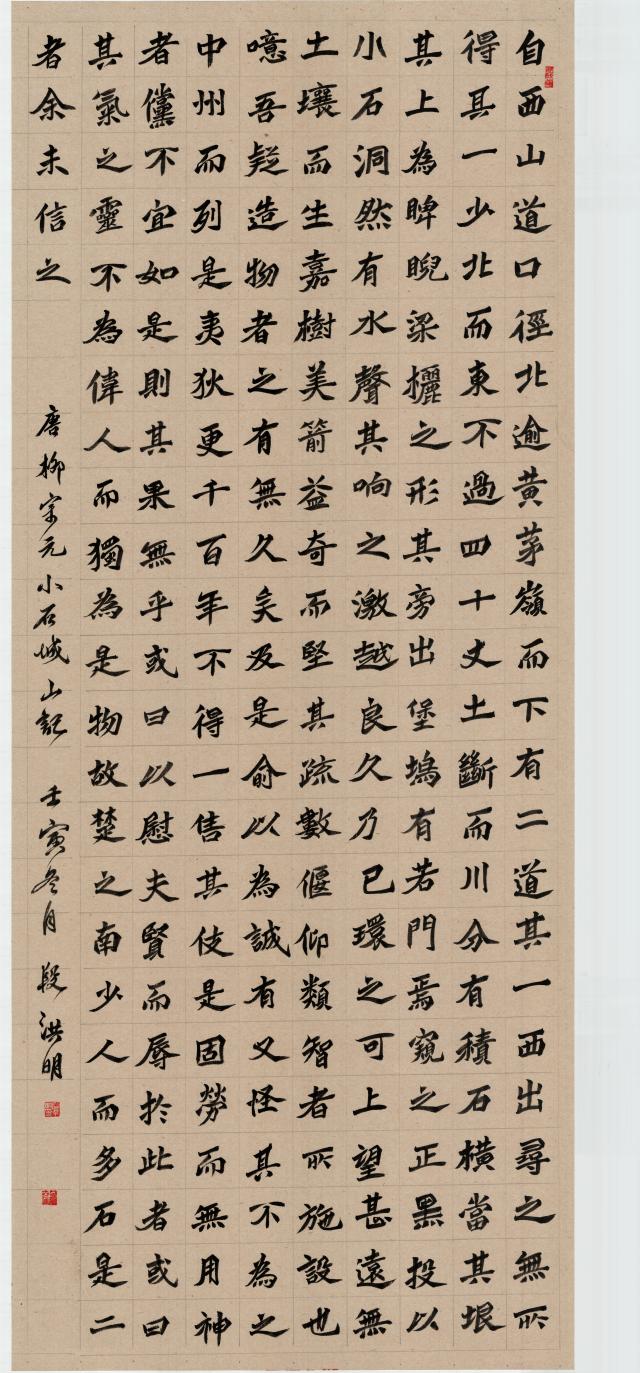 自西山道口徑北逾黃茅嶺而下有二道其一西出尋之無所
得其一少北而東不過四十丈土斷而川分有積石橫當其垠
其上為睥睨梁欐之形其旁出堡塢有若門焉窺之正黑投以
小石洞然有水聲其响之激越良久乃已環之可上望甚遠無
土壤而生嘉樹美箭益奇而堅其疏數偃仰類智者所施設也
噫吾疑造物者之有無久矣及是俞以為誠有又怪其不為之
中州而列是夷狄更千百年不得一售其伎是固勞而無用神
者儻不宜如是則其果無乎或曰以慰夫賢而辱於此者或曰
其氣之靈不為偉人而獨為是物故楚之南少人而多石是二
者余未信之
唐柳宗元小石城山記 壬寅冬月 段洪明